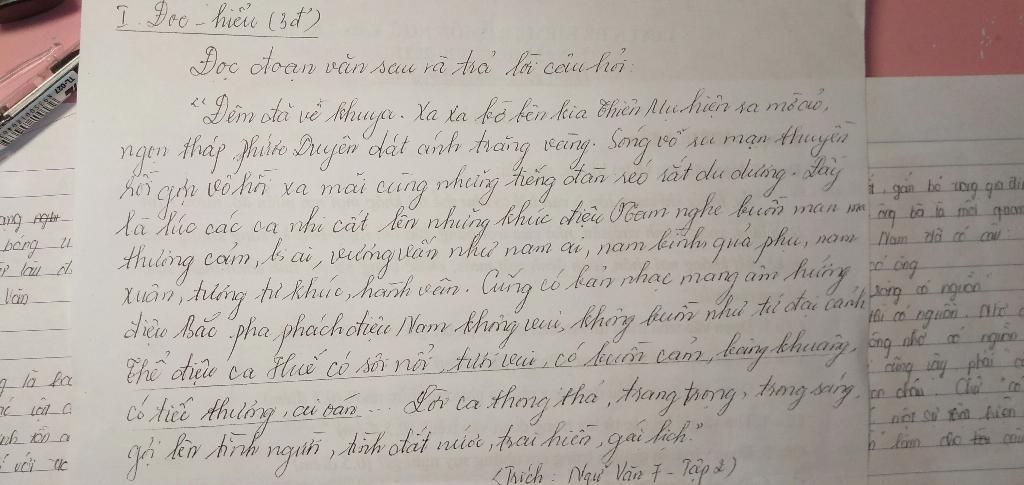 I. Đọc - hiểu (3đ)
Đọc đoạn văn sau và trả lời câu hỏi:
"Đêm đã về khuya. Xa xa bờ bên kia Thiên Mụ hiện ra mờ ảo,
ngọn tháp Phước Duyên dát ánh trăng vàng. Sóng vỗ ru mạn thuyền
rồi gợn vô hồi xa mãi cùng những tiếng đàn réo rắt du dương. Đây
là lúc các ca nhi cất lên những khúc điệu Nam nghe buồn man mác
thương cảm, bi ai, vương vấn như nam ai, nam bình, quả phụ, nam
xuân, tương tư khúc, hành vân. Cũng có bản nhạc mang âm hưởng
điệu Bắc pha phách điệu Nam không vui, không buồn như tứ đại cảnh
Thể điệu ca Huế có sôi nổi, tươi vui, có buồn cảm, bâng khuâng,
có tiếc thương, ai oán... Lời ca thong thả, trang trọng, trong sáng,
gợi lên tình người, tình đất nước, trai hiền, gái lịch."
(Trích: Ngữ Văn 7 - Tập 2)
ang
bóng
lâu
Văn
là
với
gắn bó trong gia
ông bà là mối quan
Nam đã có câu:
có ông
sông có nguồn
có nguồn. Nhờ
ông nhờ có nguồn
cũng vậy phải
con cháu. Chữ "có